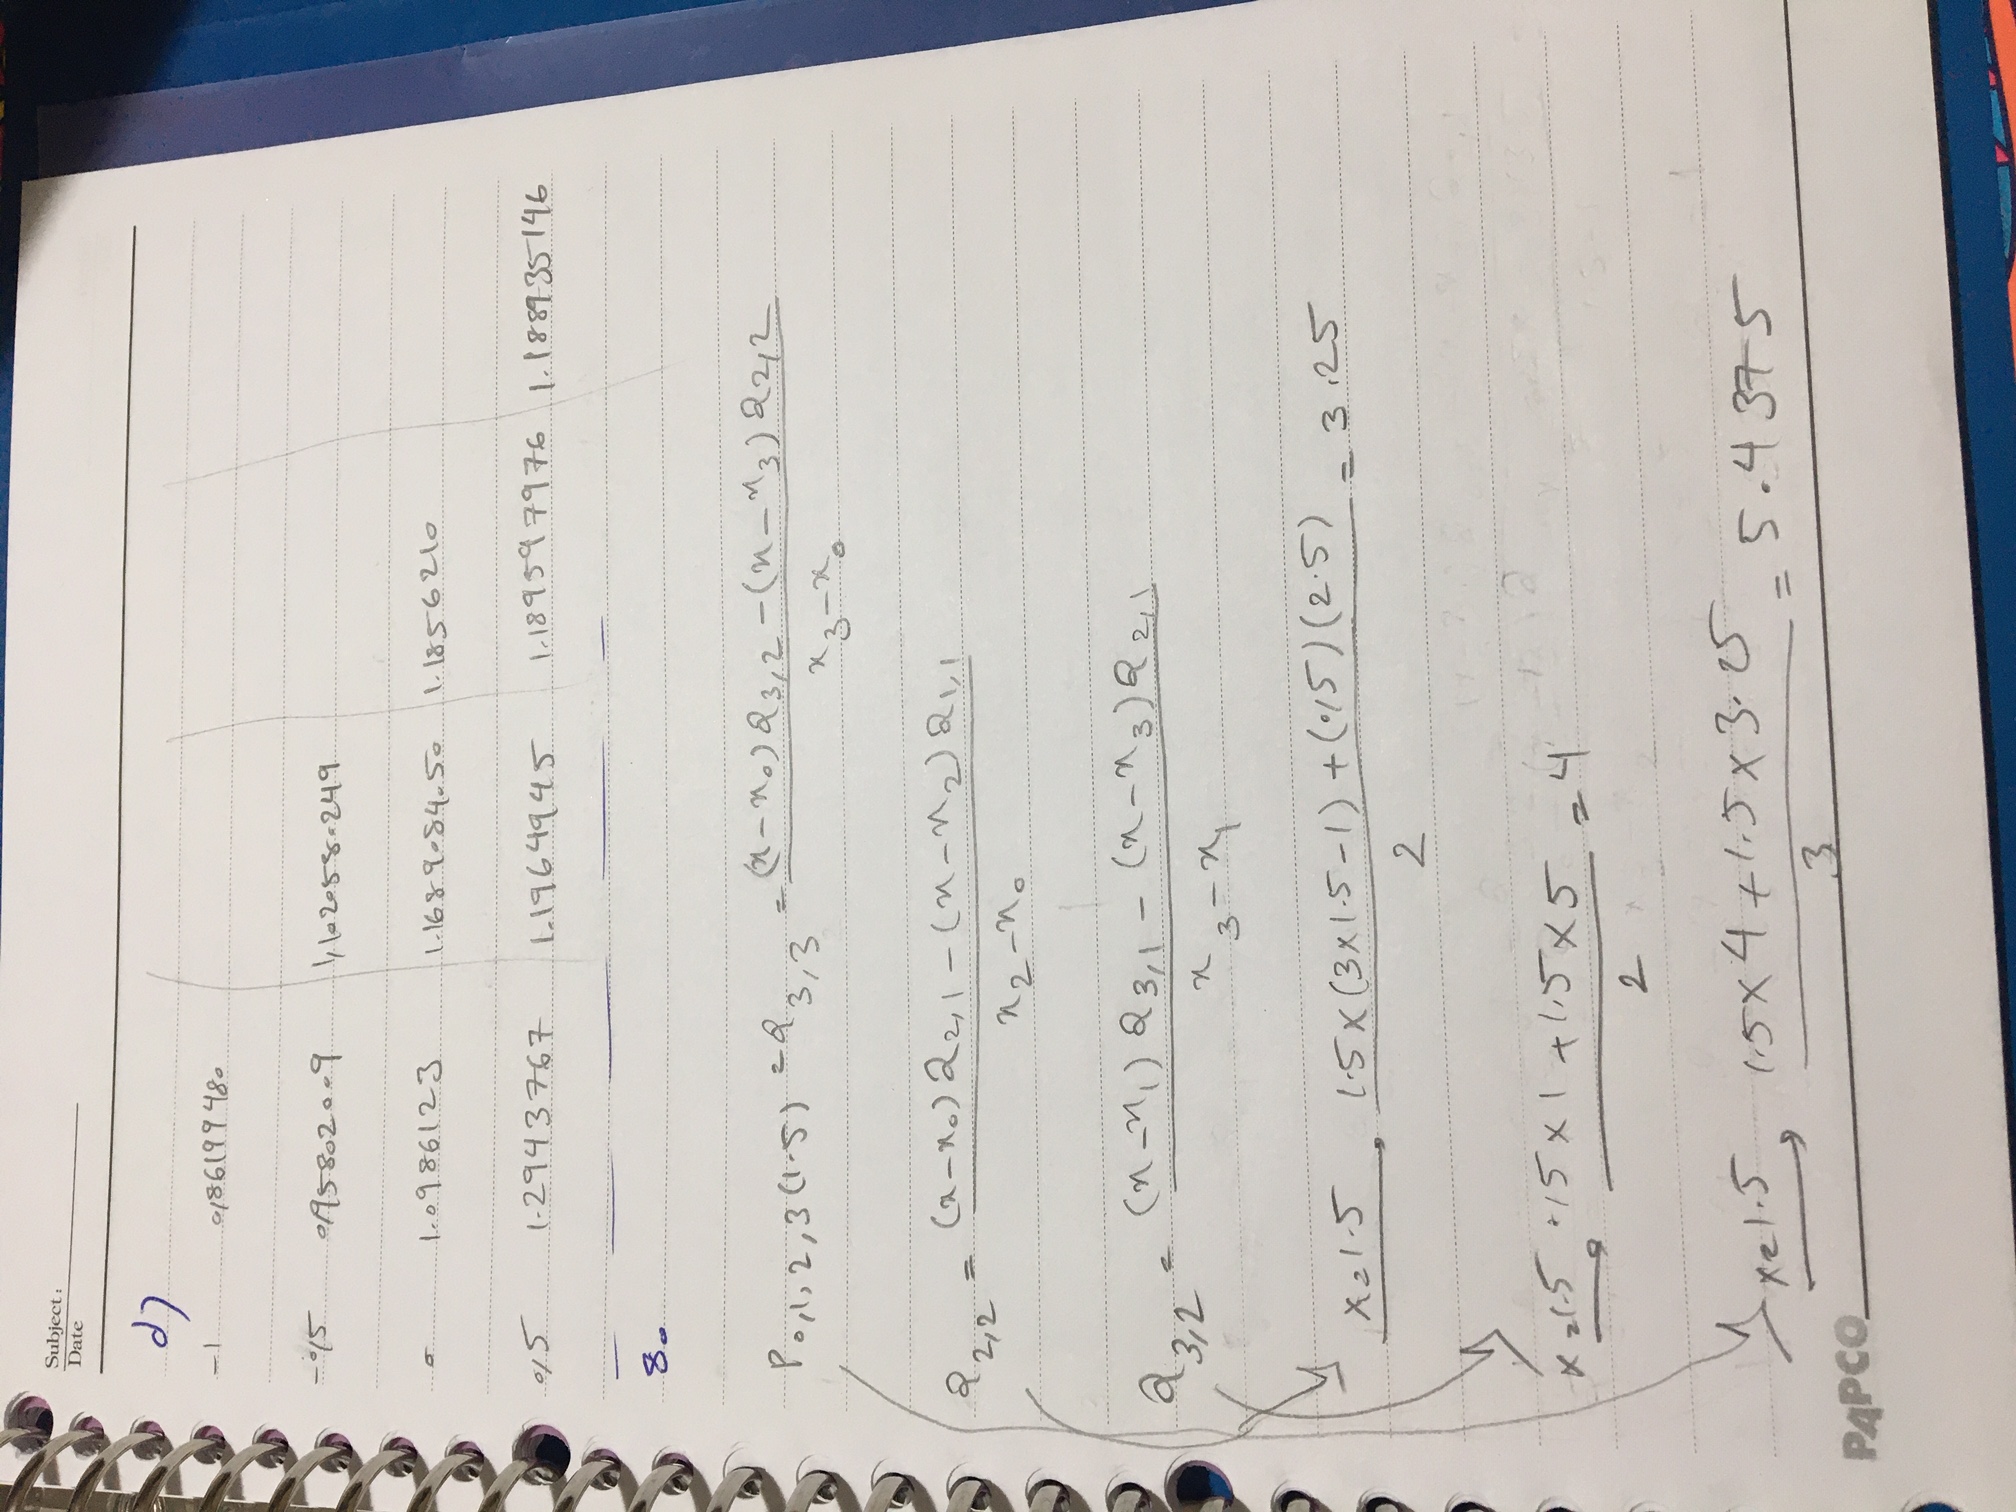 Subject:
Date
d)
-1 0,86199480
-0,5 0,95802009 1,1020580249
0 1.0986123 1.1689084050 1.1856210
0,5 1.2943767 1.1964945 1.189597976 1.188935146
80
P0,1,2,3(1.5) = Q3,3 = (x-x0)Q3,2-(x-x3)Q2,2 / x3-x0
Q2,2 = (x-x0)Q2,1-(x-x2)Q1,1 / x2-x0
Q3,2 = (x-x1)Q3,1-(x-x3)Q2,1 / x3-x1
x=1.5 1.5x(3x1.5-1)+(0,5)(2.5) / 2 = 3.25
x=1.5 0,5x1+1.5x5 / 2 = 4
x=1.5 1.5x4+1.5x3.25 / 3 = 5.4375
PAPCO